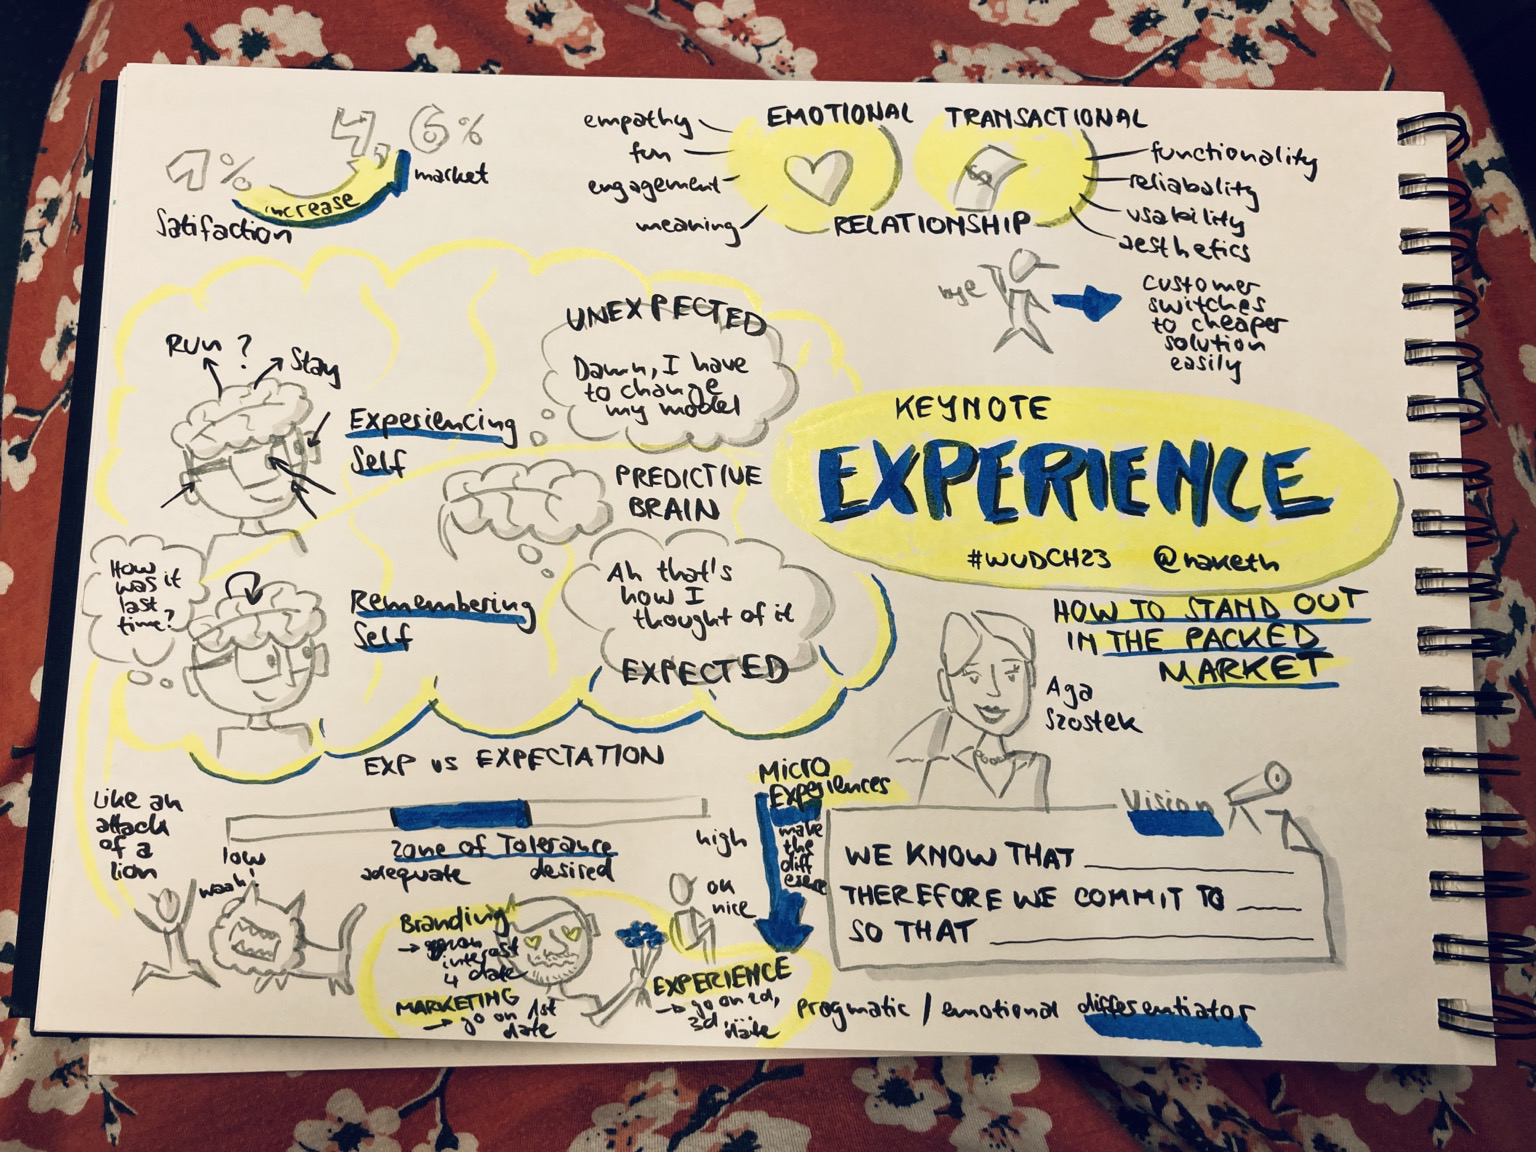 1%
4,6%
market
increase
Satifaction
empathy
fun
engagement
meaning
EMOTIONAL
TRANSACTIONAL
RELATIONSHIP
functionality
reliabality
usability
aesthetics
bye
customer
switches
to cheaper
solution
easily
Run?
Stay
Experiencing
Self
UNEXPECTED
Damn, I have
to change
my model
PREDICTIVE
BRAIN
Ah that's
how I
thought of it
EXPECTED
How
was it
last
time?
Remembering
Self
KEYNOTE
EXPERIENCE
#WUDCH23 @naketh
HOW TO STAND OUT
IN THE PACKED
MARKET
Aga
Szostek
EXP vs EXPECTATION
Like an
attack
of a
lion
low
waah!
Zone of Tolerance
adequate desired
high
oh
nice
Micro
Experiences
make
the
diff
erence
Branding
→ grow
interest
4 date
MARKETING
→ go on 1st
date
EXPERIENCE
→ go on 2d,
3d date
Vision
WE KNOW THAT
THEREFORE WE COMMIT TO
SO THAT
Pragmatic / emotional differentiator